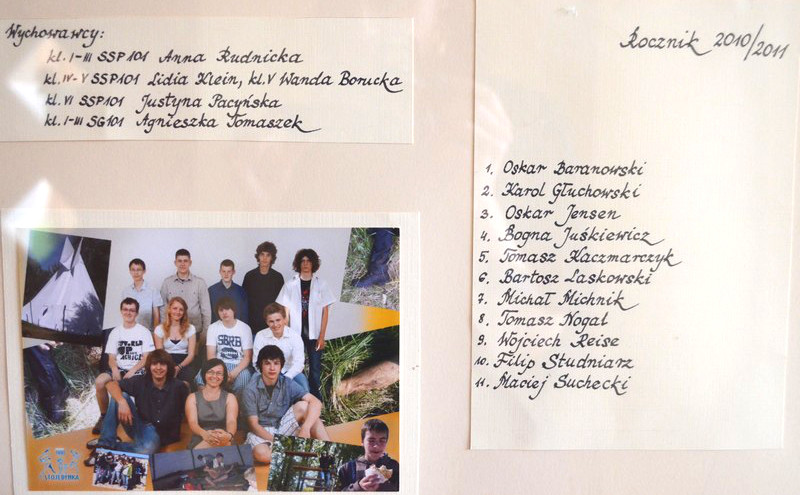 Wychowawcy:
kl. I-III SSP101 Anna Rudnicka
kl. IV-V SSP101 Lidia Klein, kl. V Wanda Borucka
kl. VI SSP101 Justyna Pacyńska
kl. I-III SG101 Agnieszka Tomaszek
Rocznik 2010/2011
1. Oskar Baranowski
2. Karol Głuchowski
3. Oskar Jensen
4. Bogna Juśkiewicz
5. Tomasz Kaczmarczyk
6. Bartosz Laskowski
7. Michał Michnik
8. Tomasz Nogal
9. Wojciech Reise
10. Filip Studniarz
11. Maciej Suchecki
SBRB
STOJEDYNKA